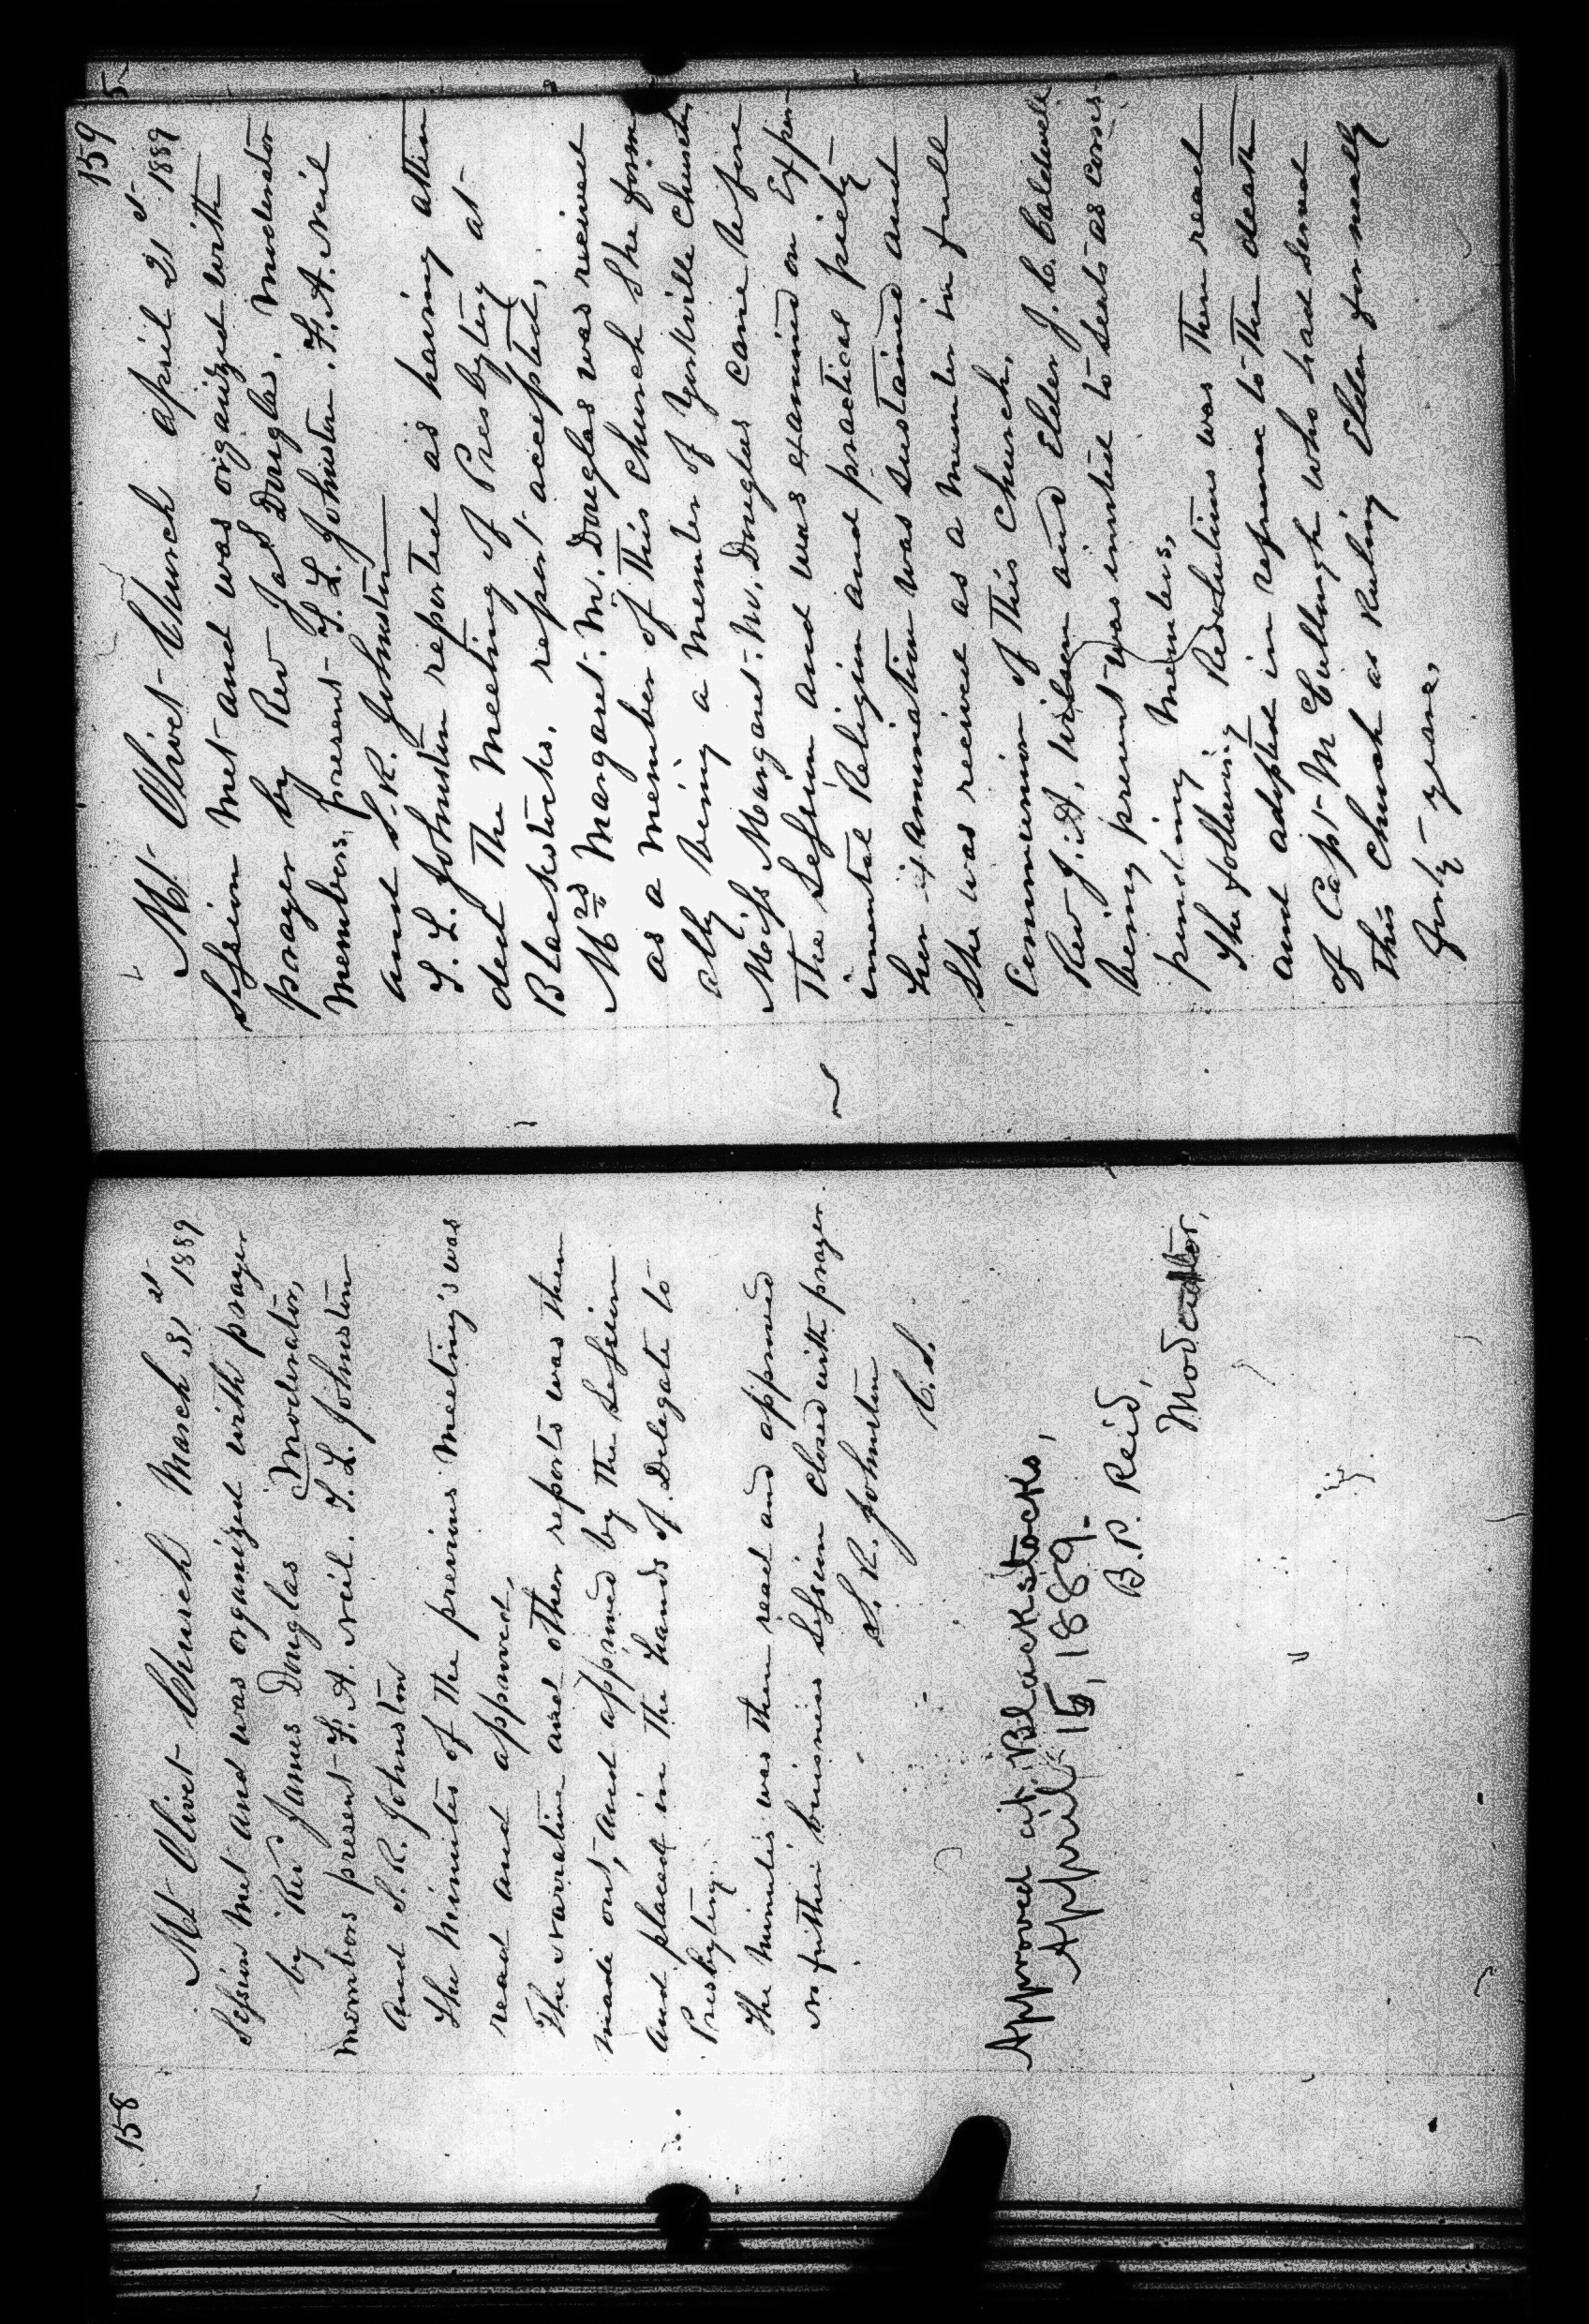 158
Mt Olivet Church March 31st 1889
Session met and was organized with prayer
by Rev James Douglas Moderator,
members present F. A. Neil. T. L. Johnston
and S. R. Johnston
The minutes of the previous meeting's was
read and approved.
The narrative and other reports was then
made out, and approved by the Session
and placed in the hands of Delegate to
Presbytery.
The minutes was then read and approved
no further buisness Session closed with prayer.
S. R. Johnston
C. S.
Approved at Blackstocks,
April 15, 1889.
B. P. Reid,
Moderator,
159
Mt Olivet Church April 21st 1889
Session met and was organized with
prayer by Rev Jas Douglas. Moderator
members, present T. L. Johnston. F. A. Neil
and S. R. Johnston
T. L. Johnston reported as having atten
ded the meeting of Presbytery at
Blackstocks. report accepted,
Mrs Margaret. M. Douglas was received
as a member of this church She form
ally being a member of Yorkville Church,
Miss Margaret. M. Douglas came before
The Session and was examined on Exper
imental Religion and practical piety
her examination was sustained and
She was receive as a member in full
Communion of This Church,
Rev J. A. Wilson and Elder J. C. Caldwell
being present was invited to seats as corres-
ponding members,
The following Resolutions was then read
and adopted in refrence to the death
of Capt McCullough who had served
this church as Ruling Elder for nearly
forty years,